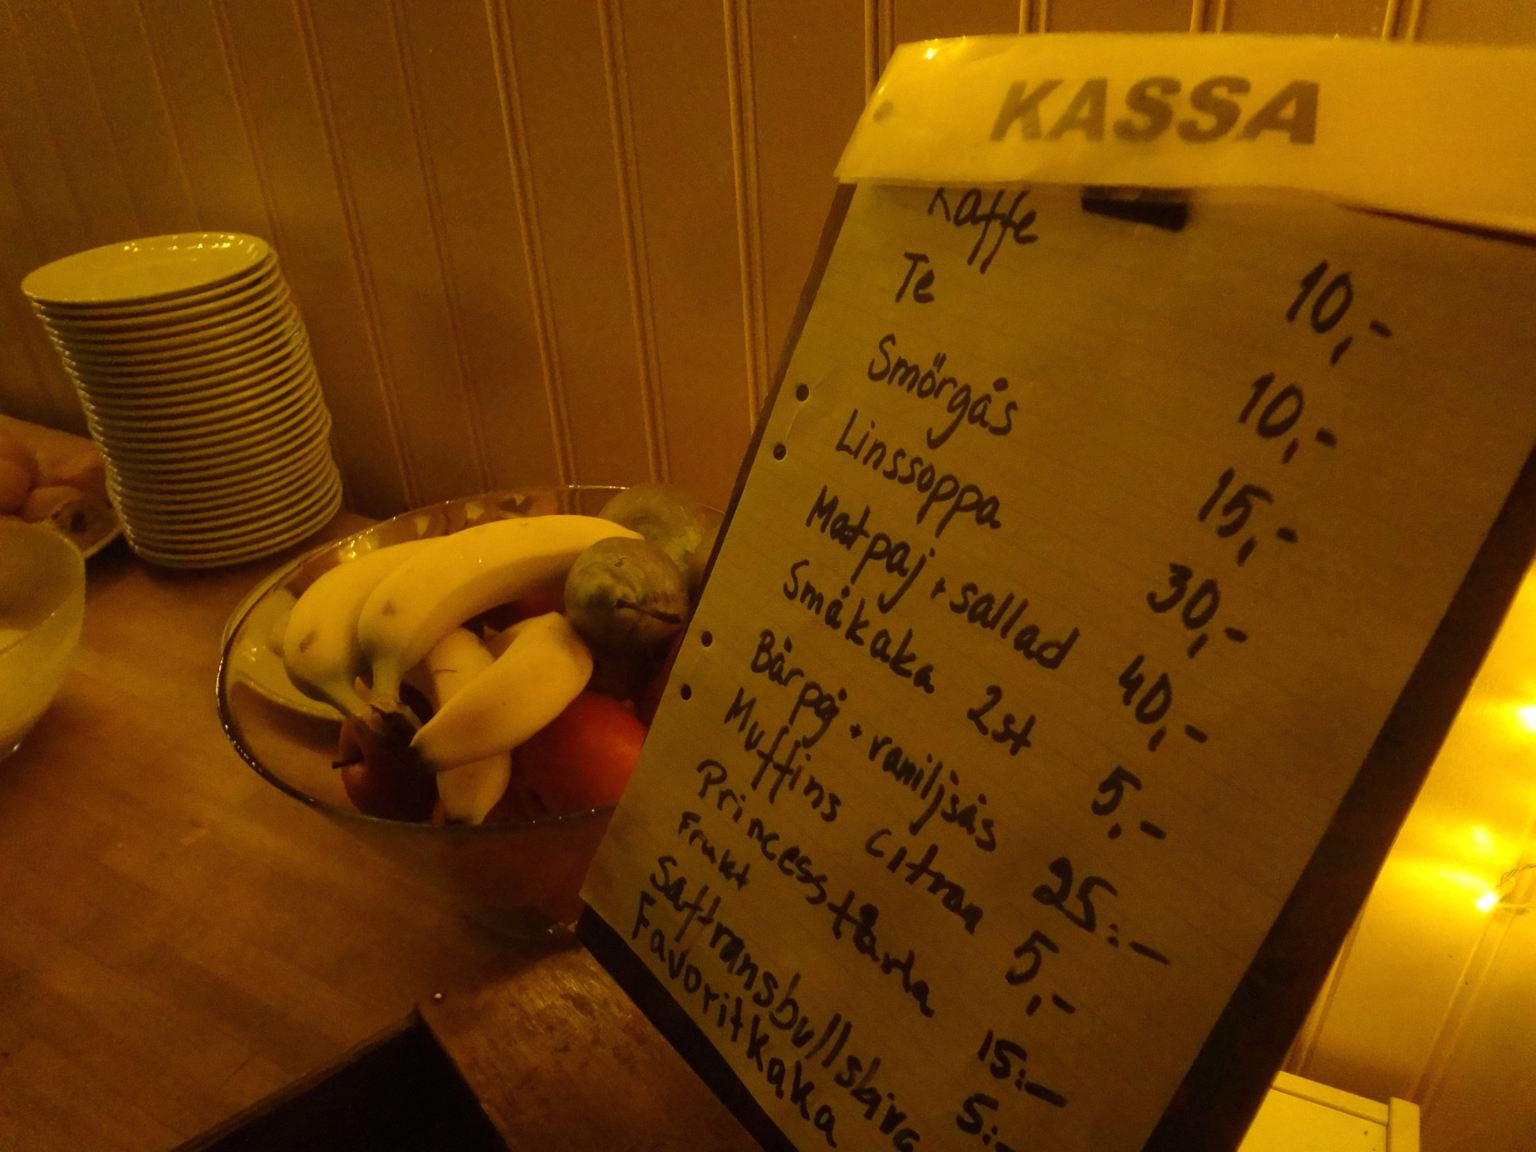 KASSA
Kaffe 10,-
Te 10,-
Smörgås 15,-
Linssoppa 30,-
Matpaj + sallad 40,-
Småkaka 2st 5,-
Bärpaj + vaniljsås 25:-
Muffins citron 5,-
Princesstårta 15:-
Frukt 5:-
Saffransbullslärg
Favoritkaka